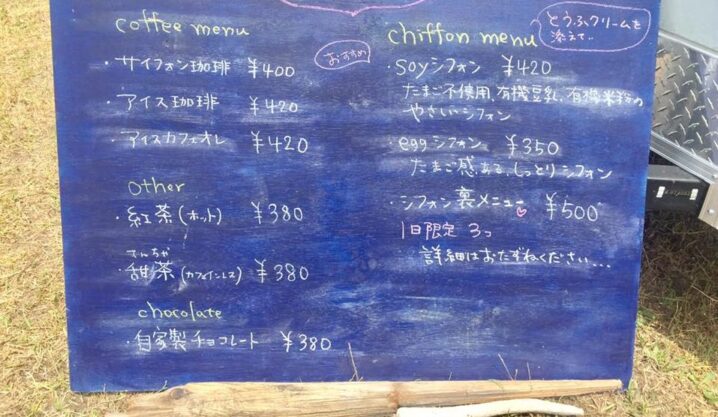 coffee menu
・サイフォン珈琲 ¥400
おすすめ
・アイス珈琲 ¥420
・アイスカフェオレ ¥420
other
・紅茶(ホット) ¥380
てんちゃ
・甜茶(カフェインレス) ¥380
chocolate
・自家製チョコレート ¥380
chiffon menu
とうふクリームを
添えて…
・soyシフォン ¥420
たまご不使用、有機豆乳、有機米粉の
やさいシフォン
・eggシフォン ¥350
たまご感ある、しっとりシフォン
・シフォン裏メニュー ¥500
1日限定 3つ
詳細はおたずねください…